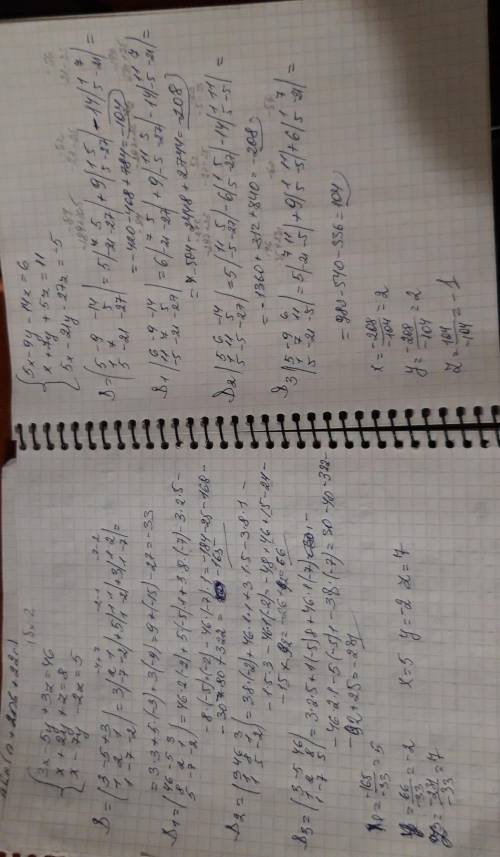 { 3x - 5y + 3z = 46
x + 2y + z = 8
x - 7y - 2z = 5
D = (3 -5 +3
1 2 1
1 -7 -2) = 3|2 1
-7 -2| + 5|1 1
1 -2| + 3|1 2
1 -7| =
= 3·3 + 5·(-3) + 3(-9) = 9 + (-15) - 27 = -33
D1 = (46 -5 3
8 2 1
5 -7 -2) = 46·2·(-2) + 5·(-5)·1 + 3·8·(-7) - 3·2·5 -
- 8·(-5)·(-2) - 46·(-7)·1 = -184 - 25 - 168 -
- 30 - 80 + 322 = -165
D2 = (3 46 3
1 8 1
1 5 -2) = 3·8·(-2) + 46·1·1 + 3·1·5 - 3·8·1 -
- 1·5·3 - 46·1·(-2) = -48 + 46 + 15 - 24 -
- 15 + 92 = 66
D3 = (3 -5 46
1 2 8
1 -7 5) = 3·2·5 + 1·(-5)·8 + 46·1·(-7) -
- 46·2·1 - 5·(-5)·1 - 3·8·(-7) = 30 - 40 - 322 -
- 92 + 25 = -231
-165/-33 = 5
66/-33 = -2
-231/-33 = 7
x = 5 y = -2 z = 7
{ 5x - 9y - 14z = 6
x + 7y + 5z = 11
5x - 21y - 27z = -5
D = (5 -9 -14
1 7 5
5 -21 -27) = 5|7 5
-21 -27| + 9|1 5
5 -27| - 14|1 7
5 -21| =
= -420 - 468 + 784 = -104
D1 (6 -9 -14
11 7 5
-5 -21 -27) = 6|7 5
-21 -27| + 9|11 5
-5 -27| - 14|11 7
-5 -21| =
= -504 - 2448 + 2744 = -208
D2 (5 6 -14
1 11 5
5 -5 -27) = 5|11 5
-5 -27| - 6|1 5
5 -27| - 14|1 11
5 -5| =
= -1360 + 312 + 840 = -208
D3 (5 -9 6
1 7 11
5 -21 -5) = 5|7 11
-21 -5| + 9|1 11
5 -5| + 6|1 7
5 -21| =
= 980 - 540 - 336 = 104
x = -208/-104 = 2
y = -208/-104 = 2
z = 104/-104 = -1